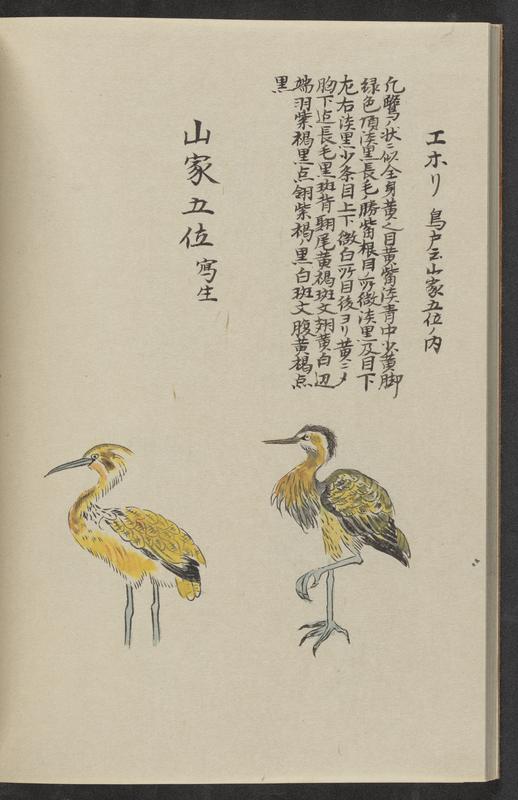 エホリ 鳥戸云山家五位ノ内
凡鷺ノ状ニ似全身黄之目黄觜淡青中少黄脚
緑色頂淡黒長毛ノ勝觜根目ノ所微淡里及目下
左右淡黒少条目上下微白所目後ヨリ黄ニメ
胸下迠長毛黒斑背翮尾黄褐斑文翅黄白辺
端羽紫褐黒点翎紫褐ノ黒白斑文腹黄褐点
黒
山家五位 寫生